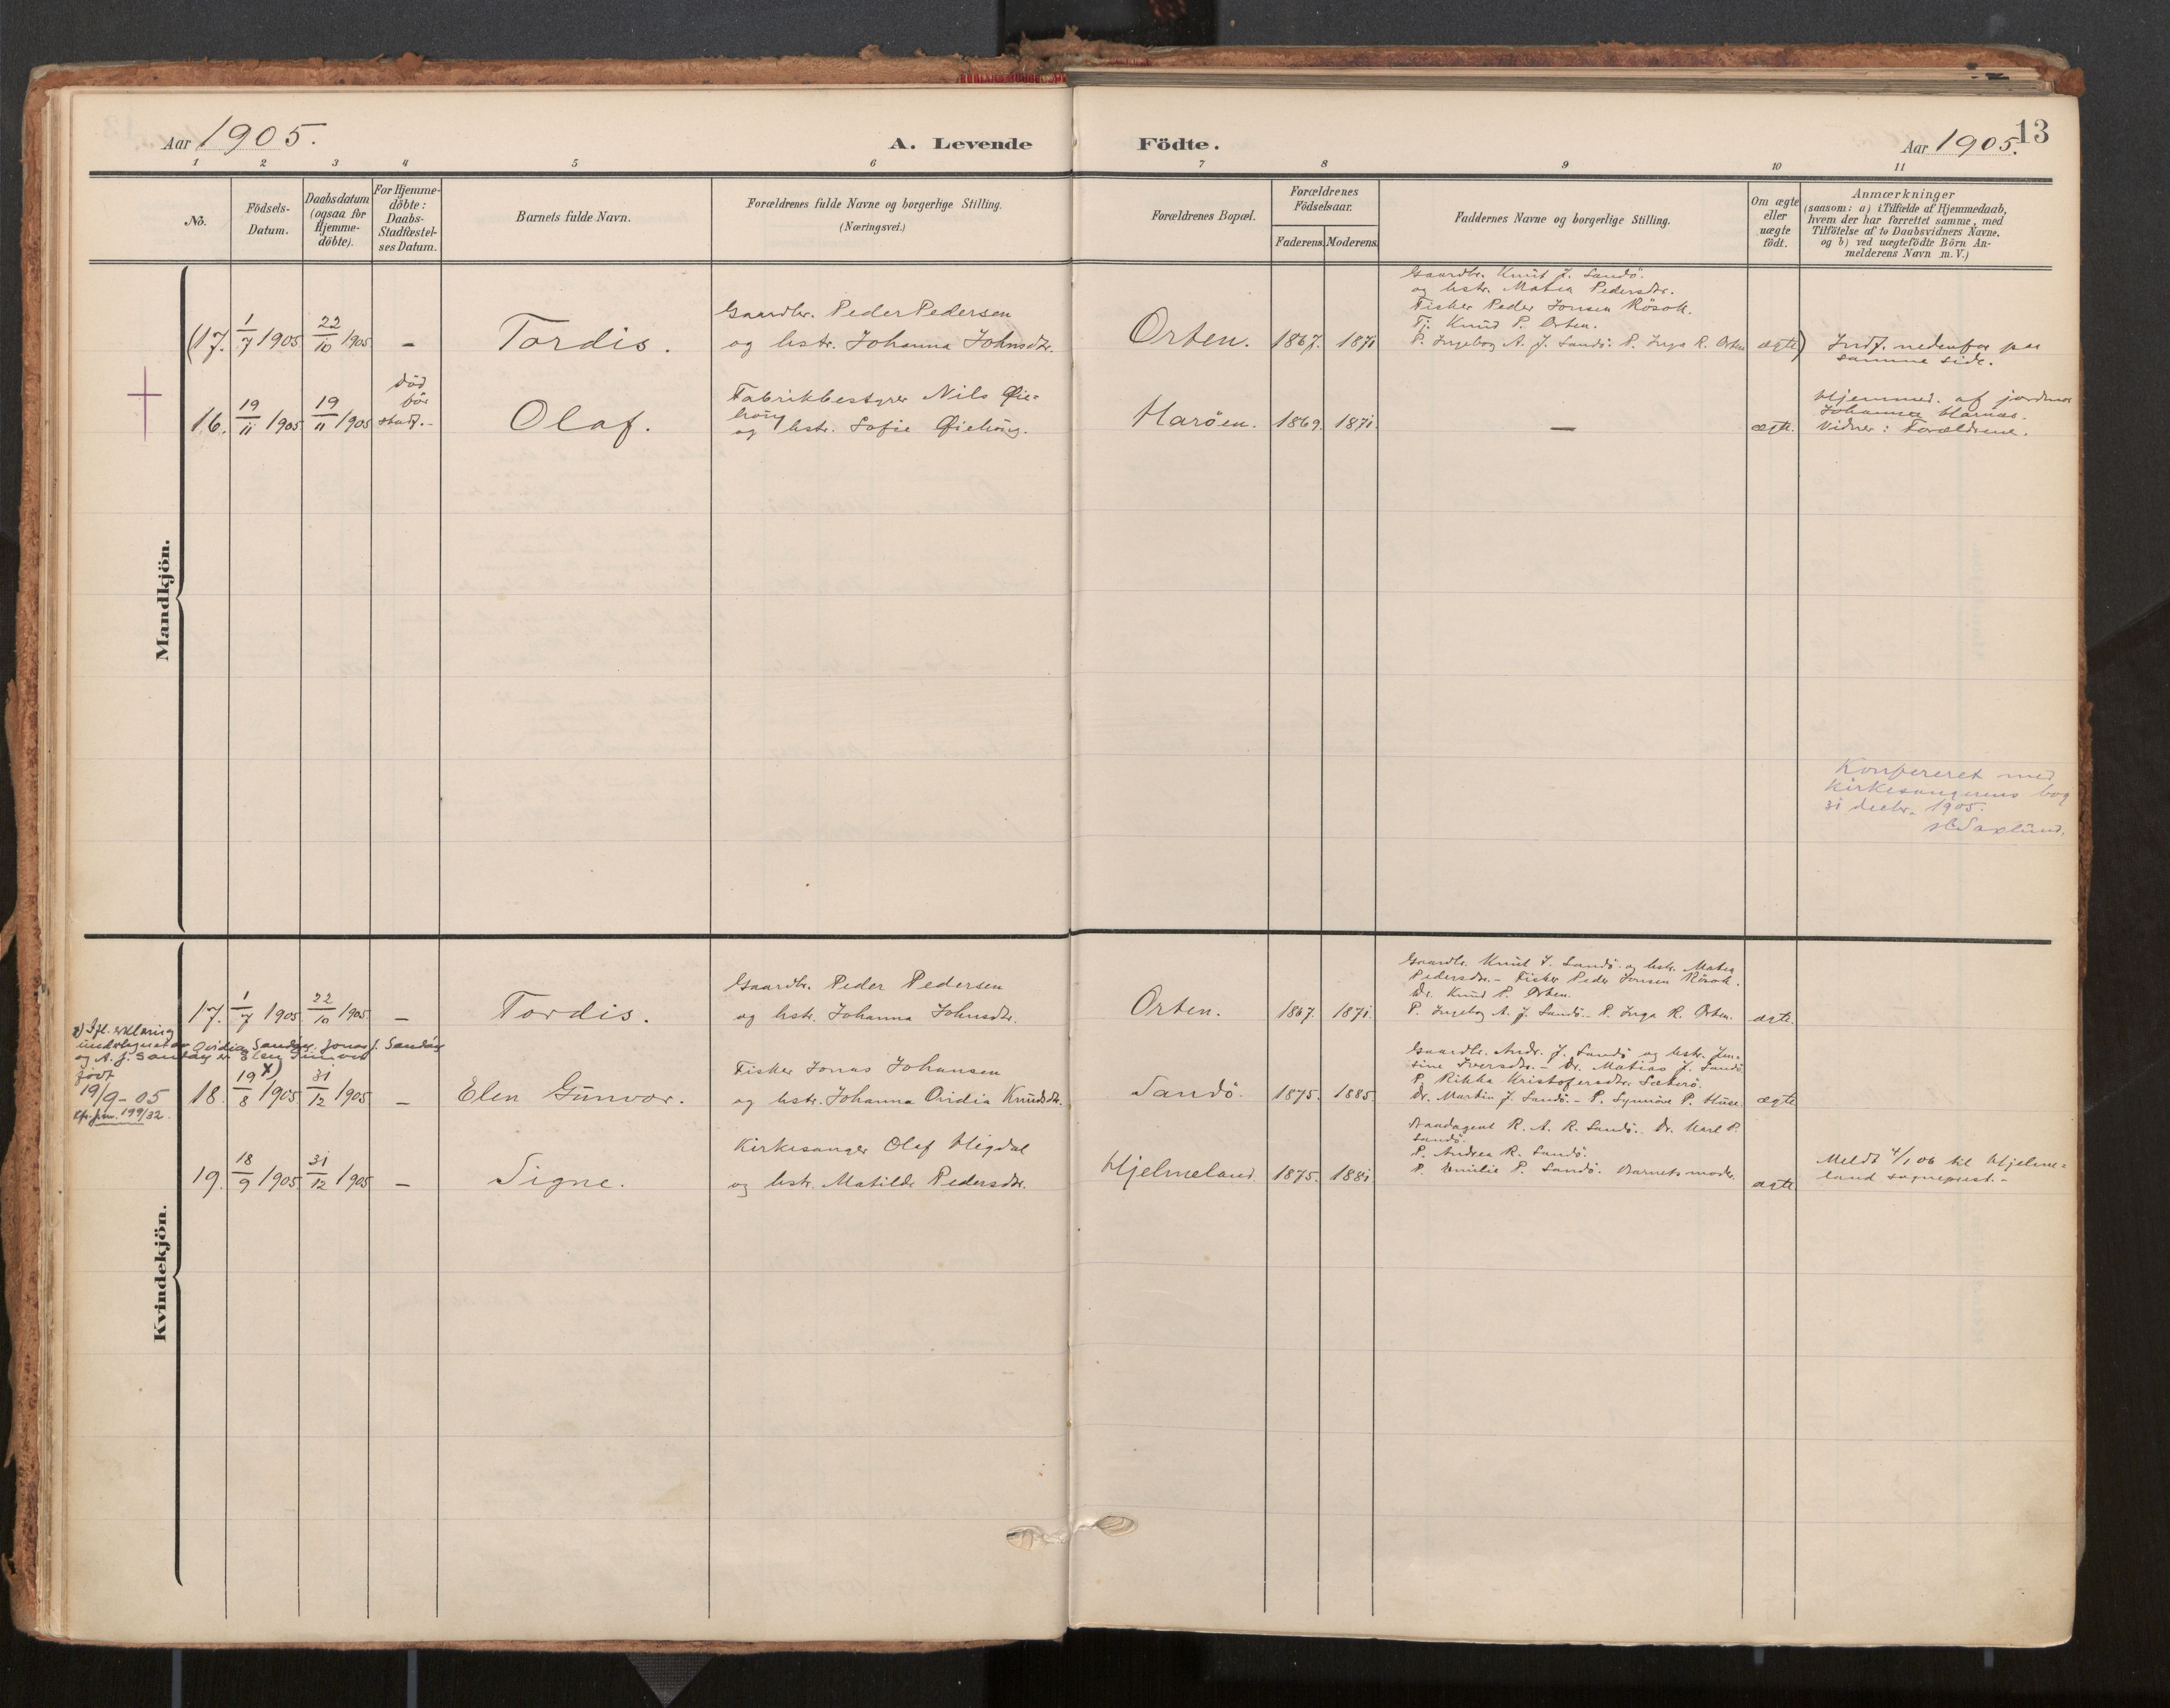 Aar 1905.
A. Levende Födte.
Aar 1905.
13
1 2 3 4 5 6 7 8 9 10 11
No.
Födsels-
Datum.
Daabsdatum
(ogsaa for
Hjemme-
döbte).
For Hjemme-
döbte:
Daabs-
Stadfæstel-
ses Datum.
Barnets fulde Navn.
Forældrenes fulde Navne og borgerlige Stilling.
(Næringsvei.)
Forældrenes Bopæl.
Forældrenes
Födselsaar.
Faderens. Moderens.
Faddernes Navne og borgerlige Stilling.
Om ægte
eller
uægte
födt.
Anmærkninger
(saasom: a) i Tilfælde af Hjemmedaab,
hvem der har forrettet samme, med
Tilföielse af to Daabsvidners Navne,
og b) ved uægtefödte Börn An-
melderens Navn m. V.)
Mandkjön.
(17. 1/7 1905 22/10 1905 – Tordis.
Gaardbr. Peder Pedersen
og hstr. Johanna Johnsdtr.
Orten. 1867. 1871
Gaardbr. Knut J. Sandö.
og hstr. Matea Pedersdtr.
Fisker Peder Jonsen Rösok.
Tj. Knud P. Orten.
P. Ingeborg A. J. Sandö. P. Inga R. Orten
ægte)
Indf. nedenfor paa
samme side.
16. 19/11 1905 19/11 1905
död
för
stadf. –
Olaf.
Fabrikbestyrer Nils Øie-
haug
og hstr. Sofie Øiehaug.
Haröen. 1869. 1871. – ægte.
Hjemmed. af jordmor
Johanna Harnæs.
Vidner: Forældrene.
Konfereret med
kirkesangerens bog
31 decbr. 1905.
Saxlund.
Kvindekjön.
17. 1/7 1905. 22/10 1905. – Tordis.
Gaardbr. Peder Pedersen
og hstr. Johanna Johnsdtr.
Orten. 1867. 1871.
Gaardbr. Knut J. Sandö og hstr. Matea
Pedersdtr. – Fisker Peder Jonsen Rösok.
Dr. Knud P. Orten.
P. Ingeborg A. J. Sandö. – P. Inga R. Orten.
ægte.
x) Ifl. erklæring
underskrevet av Ovidia Sandöy, Jonas J. Sandöy
og A. J. Sandöy er Elen Gunvor
født
19/9 – 05
Kfr. jnr. 199/32.
18. 19/8 x) 1905. 31/12 1905. – Elen Gunvor.
Fisker Jonas Johansen
og hstr. Johanna Ovidia Knudsdtr.
Sandö. 1875. 1885.
Gaardbr. Andr. J. Sandö og hstr. Jen-
sine Iversdtr. – Dr. Matias J. Sandö
P. Rikka Kristofersdtr. Sæterö.
Dr. Martin J. Sandö. – P. Synnöve P. Huse.
ægte
19. 18/9 1905. 31/12 1905 – Signe.
Kirkesanger Olaf Migdal
og hstr. Matilde Pedersdtr.
Hjelmeland. 1875. 1881.
R. A. R. Sandö. Dr. Karl P.
Sandö.
P. Andrea R. Sandö.
P. Emilie P. Sandö. Barnets moder.
ægte.
Meldt 4/1 06 til Hjelme-
land sogneprest. –